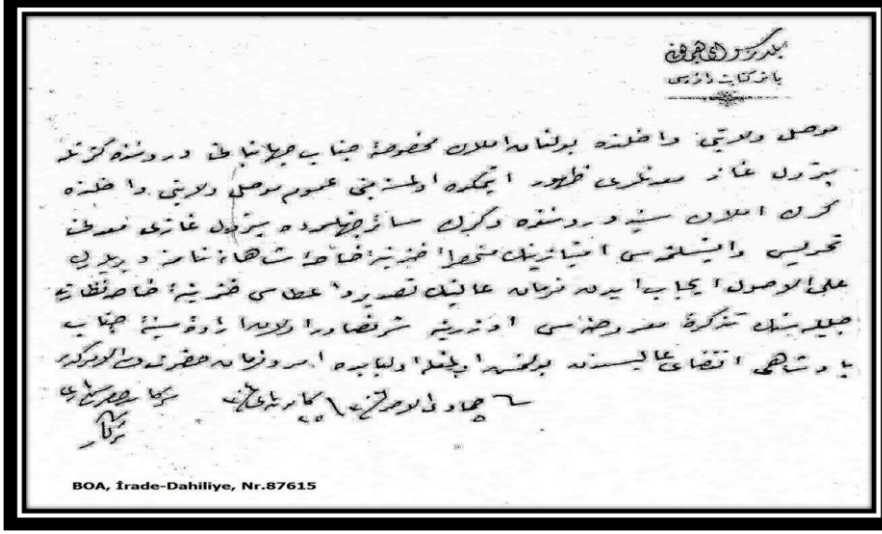 يلديز سراى همايونى
باش كتابت دائره سى
موصل ولايتى داخلنده بولنان املاك مخصوصۀ جناب جهانبانى دروننده كثرتله
پترول غاز معدنلرى ظهور ايتمكده اولمسنه مبنى عموم موصل ولايتى داخلنده
كرك املاك سنيه دروننده وكرك سائر جهتلرده پترول غازى معدنى
تحريسى وايشلتمسى امتيازينك منحصرا خزينۀ خاصۀ شاهانه نامنه ويريلوب
على الاصول ايجاب ايدن فرمان عالينك تصدير واعطاسى خزينۀ خاصه نظارت
جليله سنك تذكرۀ معروضه سى اوزرينه شرفصادر اولان ارادۀ سنيۀ جناب
پادشاهى اقتضاى عاليسندن بولنمش اولمغله اولبابده امر وفرمان حضرت من له الامركدر
BOA, İrade-Dahiliye, Nr.87615